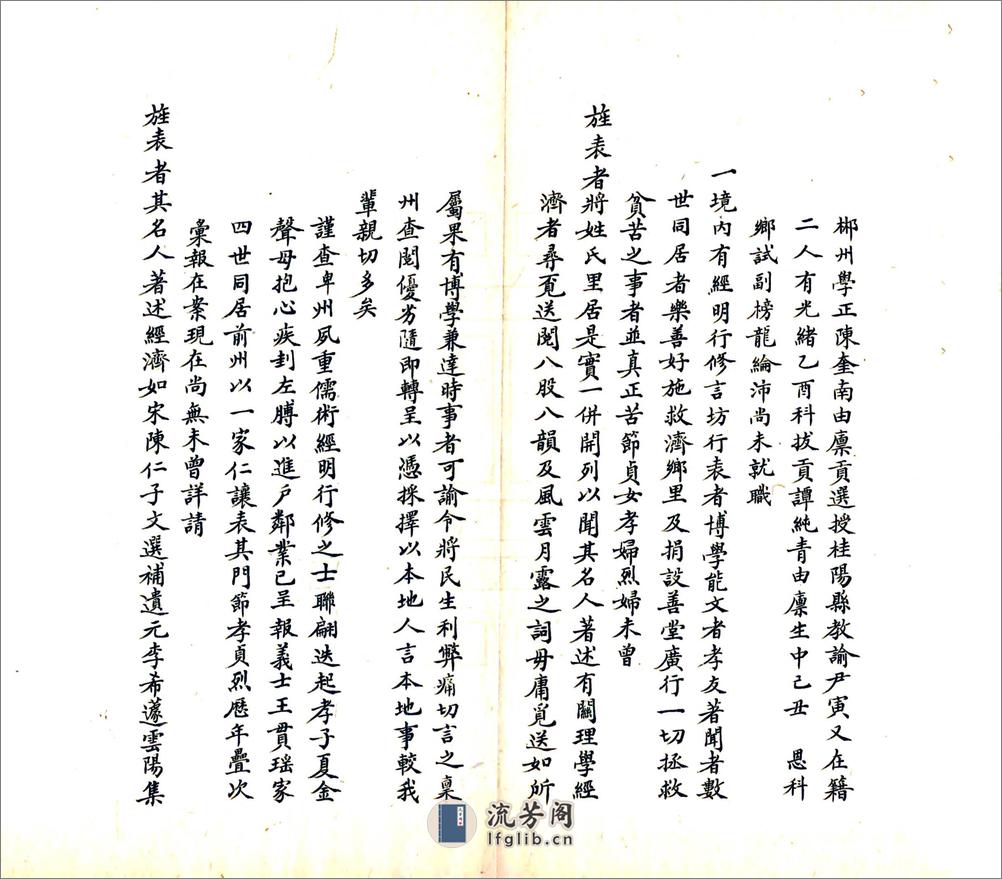 郴州學正陳奎南由廪貢選授桂陽縣教諭尹寅又在籍
二人有光緒乙酉科拔貢譚純青由廪生中己丑　恩科
鄉試副榜龍綸沛尚未就職
一境內有經明行修言坊行表者博學能文者孝友著聞者數
世同居者樂善好施救濟鄉里及捐設善堂廣行一切拯救
貧苦之事者並真正苦節貞女孝婦烈婦未曾
旌表者將姓氏里居是實一併開列以聞其名人著述有關理學經
濟者尋覓送閱八股八韻及風雲月露之詞毋庸覓送如所
屬果有博學兼達時事者可諭令將民生利弊痛切言之稟
州查閱優劣隨即轉呈以憑採擇以本地人言本地事較我
輩親切多矣
謹查卑州夙重儒術經明行修之士聯翩迭起孝子夏金
聲母抱心疾刲左膊以進戶鄰業已呈報義士王貫瑶家
四世同居前州以一家仁讓表其門節孝貞烈歷年疊次
彙報在案現在尚無未曾詳請
旌表者其名人著述經濟如宋陳仁子文選補遺元李希蘧雲陽集
流芳阁
lfglib.cn